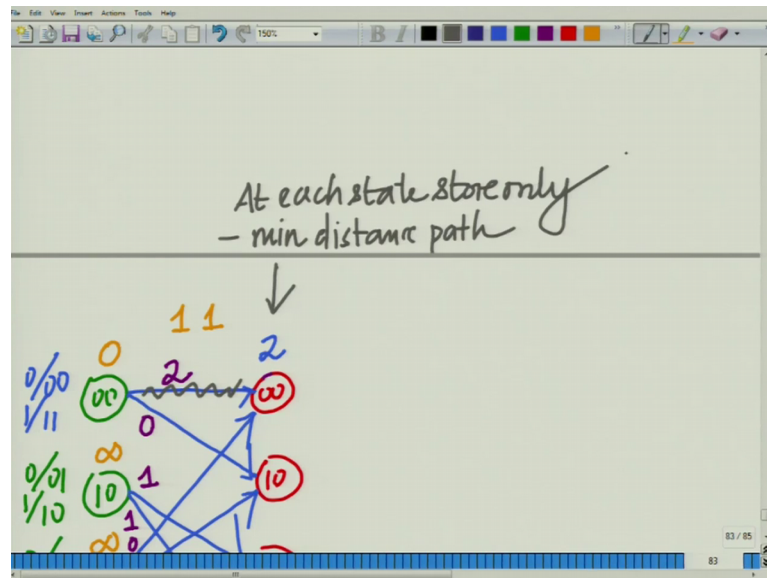 File Edit View Insert Actions Tools Help
150%
At each state store only
- min distance path
11
0 2
0/00 00 2 00
1/11 0
∞
0/01 10 1 10
1/10 1
∞ 0
83 / 85
83